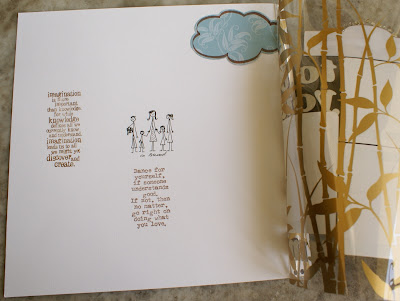 imagination
is more
important
than knowledge
for while
knowledge
defines all we
currently know
and understand
imagination
to all
we might yet
discover and
create.
Dance for
yourself,
if someone
understands
good.
If not, then
no matter,
go right on
doing what
you love.